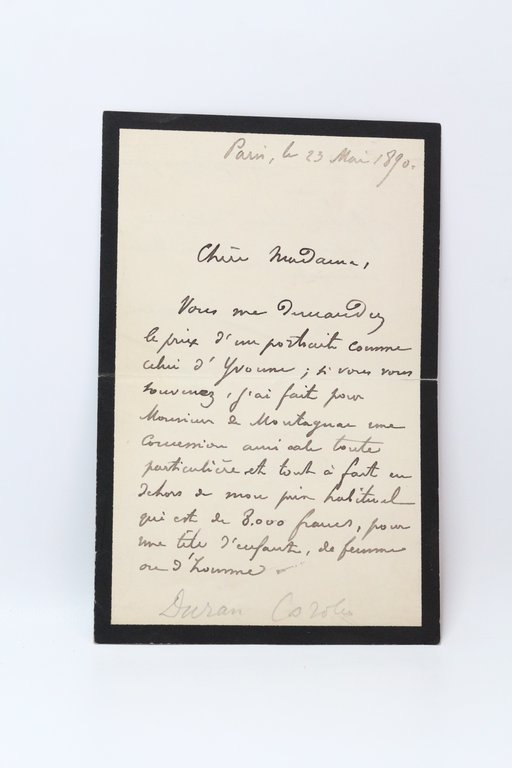 Paris, le 23 Mai 1890.
Chère Madame,
Vous me demandez
le prix d'un portrait comme
celui d'Yvonne ; si vous vous
souvenez, j'ai fait pour
Monsieur de Montagnac une
concession amicale toute
particulière et tout à fait en
dehors de mon prix habituel
qui est de 8.000 francs, pour
une tête d'enfant, de femme
ou d'homme
Duran Carolus